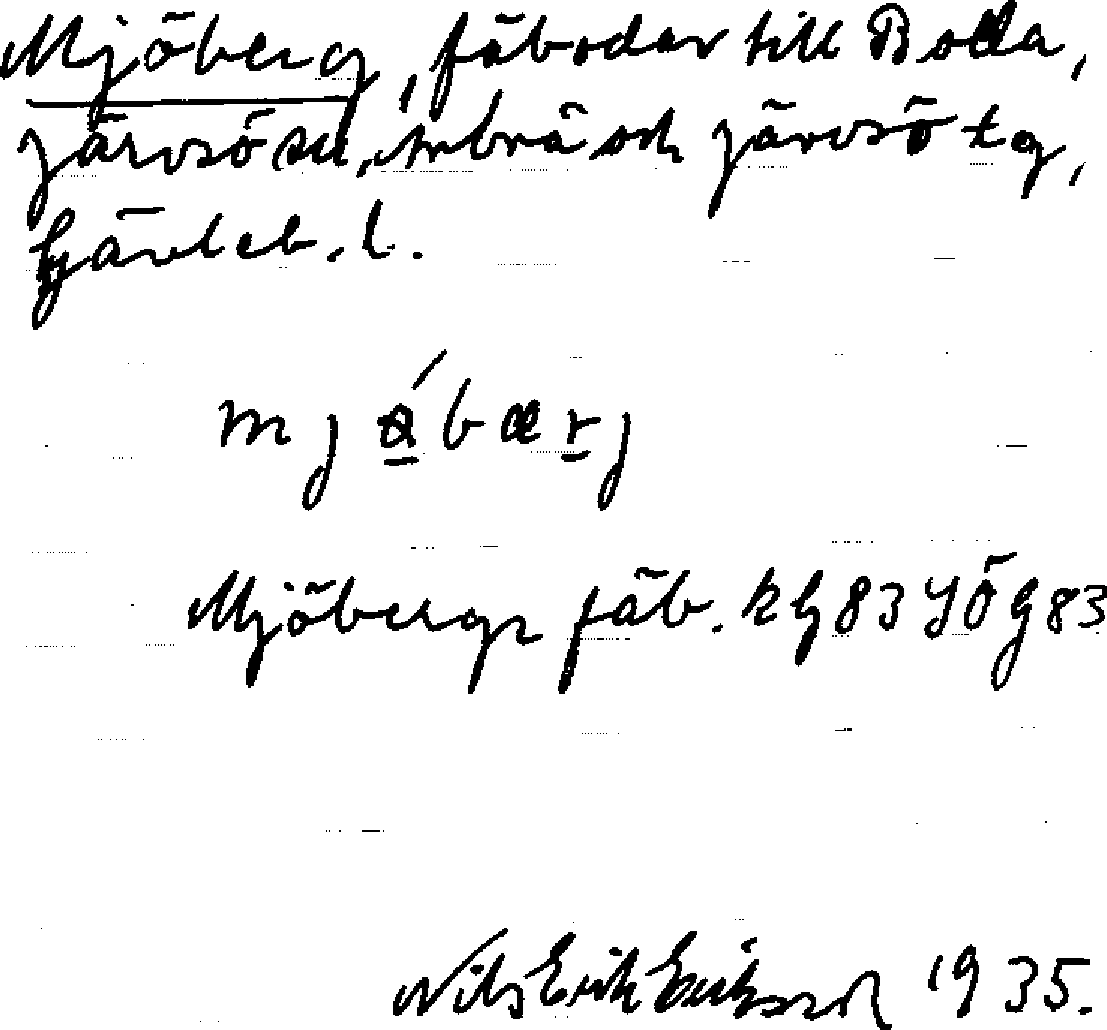 Mjöberg, fäbodar till Bolla,
Järvsö sn, Arbrå och Järvsö tg,
Gävleb. l.
mjǻbærj
Mjöbergs fäb. kG83 JÖG83
Nils Erik Eriksson 1935.